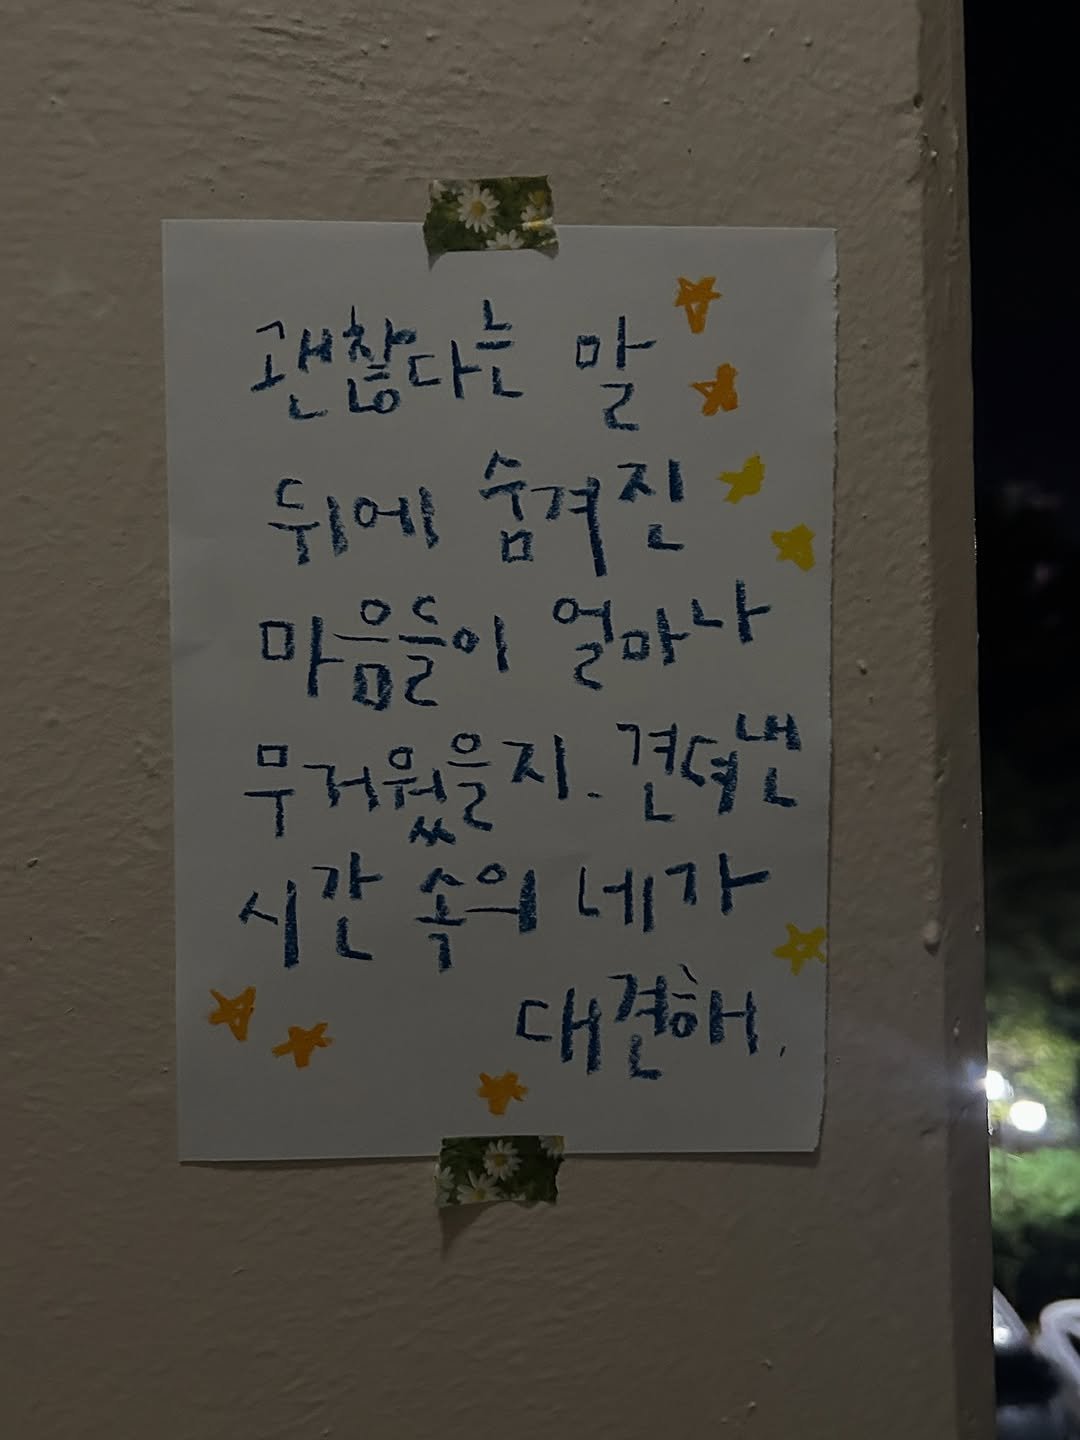 괜찮다는 말
뒤에 숨겨진
마음들이 얼마나
무거웠을지. 견뎌낸
시간 속의 네가
대견해.